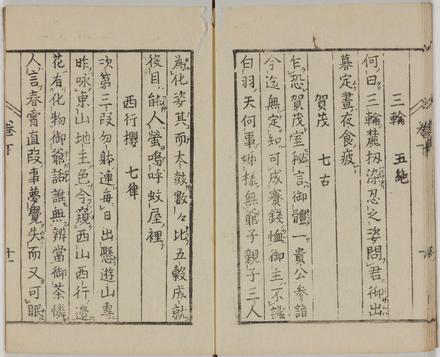 三輪　五絶
何曰三輪麓扨染忍之姿問君御出
暮定晝夜食疲
賀茂　七古
乍恐賀茂宮秘言御體一貴公參詣
今迄無定知可成賽錢恤御主不談
白羽天何事姊樣無爺子親子三人
為化姿其而太鼓數々比五穀成就
後目能人螢鳴呼蚊屋裡
西行櫻　七律
次第三段勿騷連每日出懸遊山專
昨咏東山地主色今頽西山西行邊
花有化物御爺話誰無辨當御茶憐
人言春宵直段事夢覺失而又可眠
卷下
十一